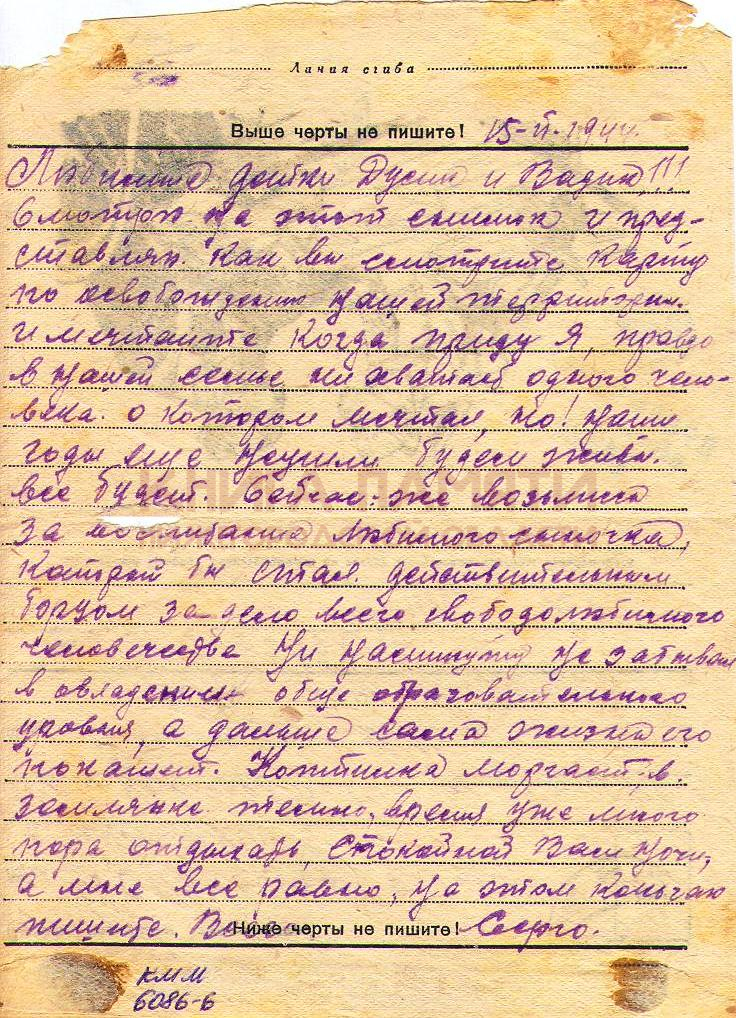 Линия сгиба
Выше черты не пишите! 15-II-1944.
Любимые детки Дусик и Вадик!!!
Смотрю на этот снимок и пред-
ставляю. Как вы смотрите карту
по освобождению нашей территории.
и мечтаите когда приду я, правда
в нашей семье не хватает одного чело-
века. о котором мечтал, но! наши
годы еще неушли будем живы.
все будет. Сейчас-же возьмись
за воспитания Любимого сыночка,
Который бы стал действительным
Борцом за дело всего свободолюбивого
человечества Ни наминуту не забывай
в овладении обще образовательного
уровня, а дальше сама жизнь его
покажет. Коптилка моргает. в.
землянке темно, время уже много
пора отдыхать, Спокойной Вам ночи,
а мне все равно, на этом кончаю
пишите. Ниже черты не пишите! Серго.
КММ
6086-6
КНИГА ПАМЯТИ